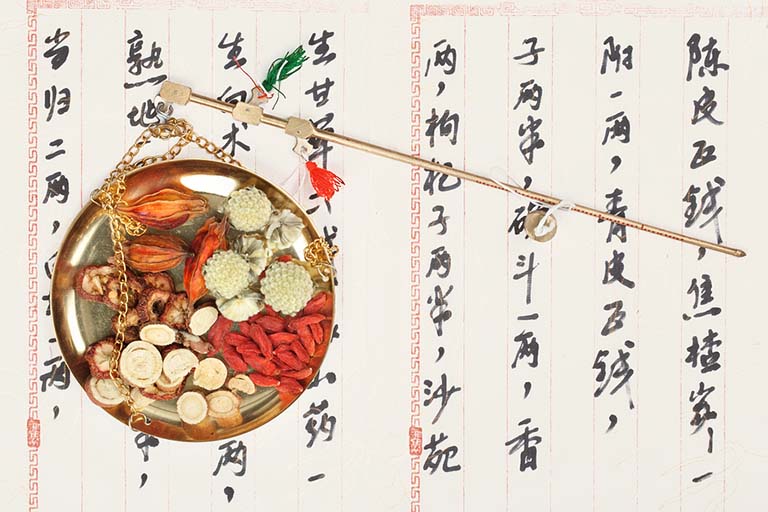 当归二两,一两,
熟地
生白术两,
生甘草六山药一
两,枸杞子两半,沙苑
子两半,斗一两,香
附一两,青皮五钱,
陈皮五钱,焦楂,一